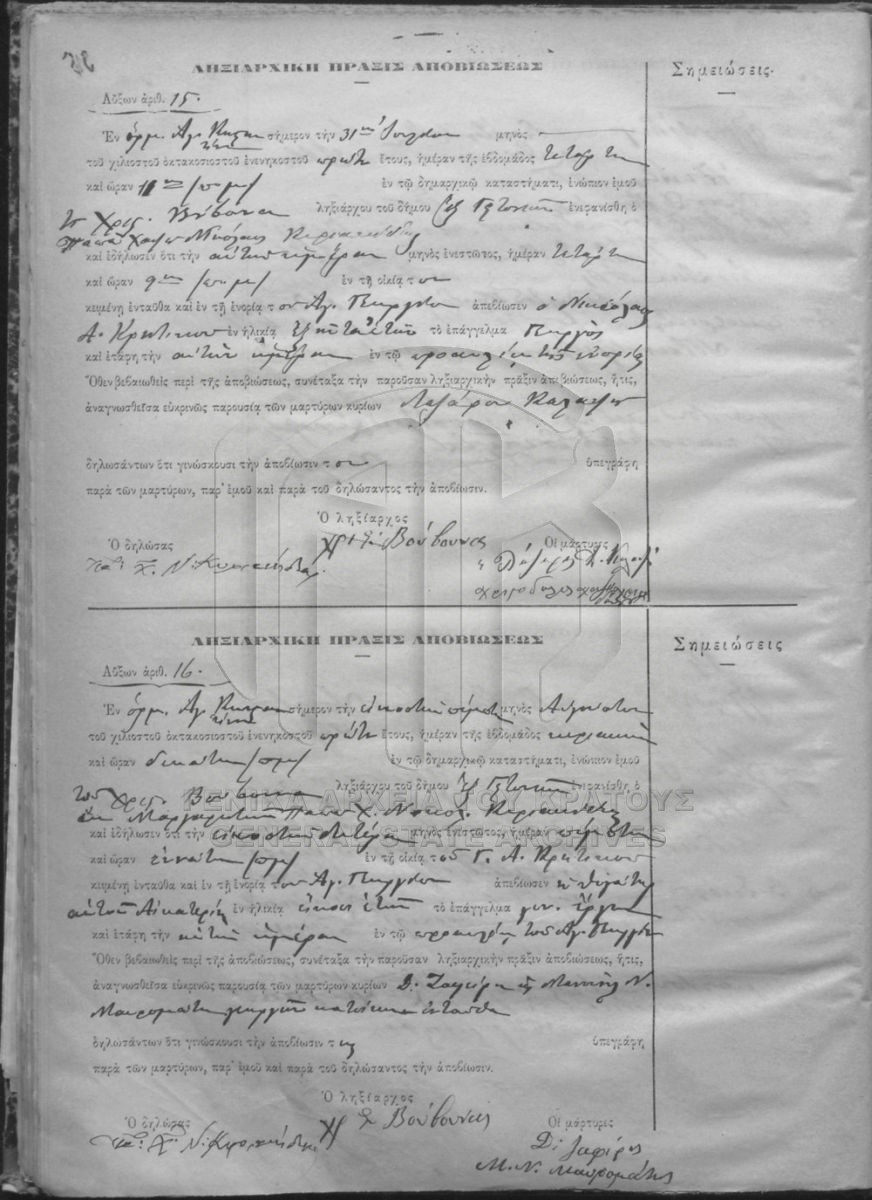 ΛΗΞΙΑΡΧΙΚΗ ΠΡΑΞΙΣ ΑΠΟΒΙΩΣΕΩΣ
Σημειώσεις.
Αὔξων ἀριθ. 15.
Ἐν ὅρμ. Ἁγ. σήμερον τὴν 31ην Ἰουλίου μηνὸς
τοῦ χιλιοστοῦ ὀκτακοσιοστοῦ ἐνενηκοστοῦ πρώτου ἔτους, ἡμέραν τῆς ἑβδομάδος τετάρτην
καὶ ὥραν 11ην π.μ. ἐν τῷ δημαρχικῷ καταστήματι, ἐνώπιον ἐμοῦ
Χρισ. Βούβουνα ληξιάρχου τοῦ δήμου ἐνεφανίσθη ὁ
παπᾶ Χατζῆ Νικόλαος Κυριακίδης
καὶ ἐδήλωσεν ὅτι τὴν αὐτὴν ἡμέραν μηνὸς ἐνεστῶτος, ἡμέραν τετάρτην
καὶ ὥραν 9ην π.μ. ἐν τῇ οἰκίᾳ του
κειμένῃ ἐνταῦθα καὶ ἐν τῇ ἐνορίᾳ τοῦ Ἁγ. Γεωργίου ἀπεβίωσεν ὁ Νικόλαος
Α. Κρητικοῦ ἐν ἡλικίᾳ ἑξήκοντα ἐτῶν τὸ ἐπάγγελμα Γεωργὸς
καὶ ἐτάφη τὴν αὐτὴν ἡμέραν ἐν τῷ προαυλίῳ τῆς ἐνορίας
Ὅθεν βεβαιωθεὶς περὶ τῆς ἀποβιώσεως, συνέταξα τὴν παροῦσαν ληξιαρχικὴν πρᾶξιν ἀποβιώσεως, ἥτις,
ἀναγνωσθεῖσα εὐκρινῶς παρουσίᾳ τῶν μαρτύρων κυρίων Λαζάρου
δηλωσάντων ὅτι γινώσκουσι τὴν ἀποβίωσιν του ὑπεγράφη
παρὰ τῶν μαρτύρων, παρ' ἐμοῦ καὶ παρὰ τοῦ δηλώσαντος τὴν ἀποβίωσιν.
Ὁ ληξίαρχος
Ὁ δηλώσας Βούβουνας Οἱ μάρτυρες
Χ. Ν. Κυριακίδης
ΛΗΞΙΑΡΧΙΚΗ ΠΡΑΞΙΣ ΑΠΟΒΙΩΣΕΩΣ
Σημειώσεις
Αὔξων ἀριθ. 16.
Ἐν ὅρμ. Ἁγ. σήμερον τὴν εἰκοστὴν πέμπτην μηνὸς Αὐγούστου
τοῦ χιλιοστοῦ ὀκτακοσιοστοῦ ἐνενηκοστοῦ πρώτου ἔτους, ἡμέραν τῆς ἑβδομάδος κυριακὴν
καὶ ὥραν δεκάτην π.μ. ἐν τῷ δημαρχικῷ καταστήματι, ἐνώπιον ἐμοῦ
τοῦ Χρισ. Βούβουνα ληξιάρχου τοῦ δήμου ἐνεφανίσθη ὁ
Παπα Χ. Νικολ. Κυριακίδης
καὶ ἐδήλωσεν ὅτι τὴν εἰκοστὴν τετάρτην μηνὸς ἐνεστῶτος, ἡμέραν
καὶ ὥραν ἐννάτην π.μ. ἐν τῇ οἰκίᾳ τοῦ Γ. Α. Κρητικοῦ
κειμένῃ ἐνταῦθα καὶ ἐν τῇ ἐνορίᾳ τοῦ Ἁγ. Γεωργίου ἀπεβίωσεν ἡ θυγάτηρ
αὐτοῦ Αἰκατερίνη ἐν ἡλικίᾳ εἴκοσι ἐτῶν τὸ ἐπάγγελμα
καὶ ἐτάφη τὴν αὐτὴν ἡμέραν ἐν τῷ προαυλίῳ τοῦ Ἁγ. Γεωργίου
Ὅθεν βεβαιωθεὶς περὶ τῆς ἀποβιώσεως, συνέταξα τὴν παροῦσαν ληξιαρχικὴν πρᾶξιν ἀποβιώσεως, ἥτις,
ἀναγνωσθεῖσα εὐκρινῶς παρουσίᾳ τῶν μαρτύρων κυρίων Δ. Ζαφείρη Ν.
Μαυρομάτη γεωργῶν κατοίκων ἐνταῦθα
δηλωσάντων ὅτι γινώσκουσι τὴν ἀποβίωσιν της ὑπεγράφη
παρὰ τῶν μαρτύρων, παρ' ἐμοῦ καὶ παρὰ τοῦ δηλώσαντος τὴν ἀποβίωσιν.
Ὁ ληξίαρχος
Ὁ δηλώσας Βούβουνας Οἱ μάρτυρες
Χ. Ν. Κυριακίδης
Δ. Ζαφίρης
Μ. Ν. Μαυρομάτης
ΓΕΝΙΚΑ ΑΡΧΕΙΑ ΤΟΥ ΚΡΑΤΟΥΣ
GENERAL STATE ARCHIVES